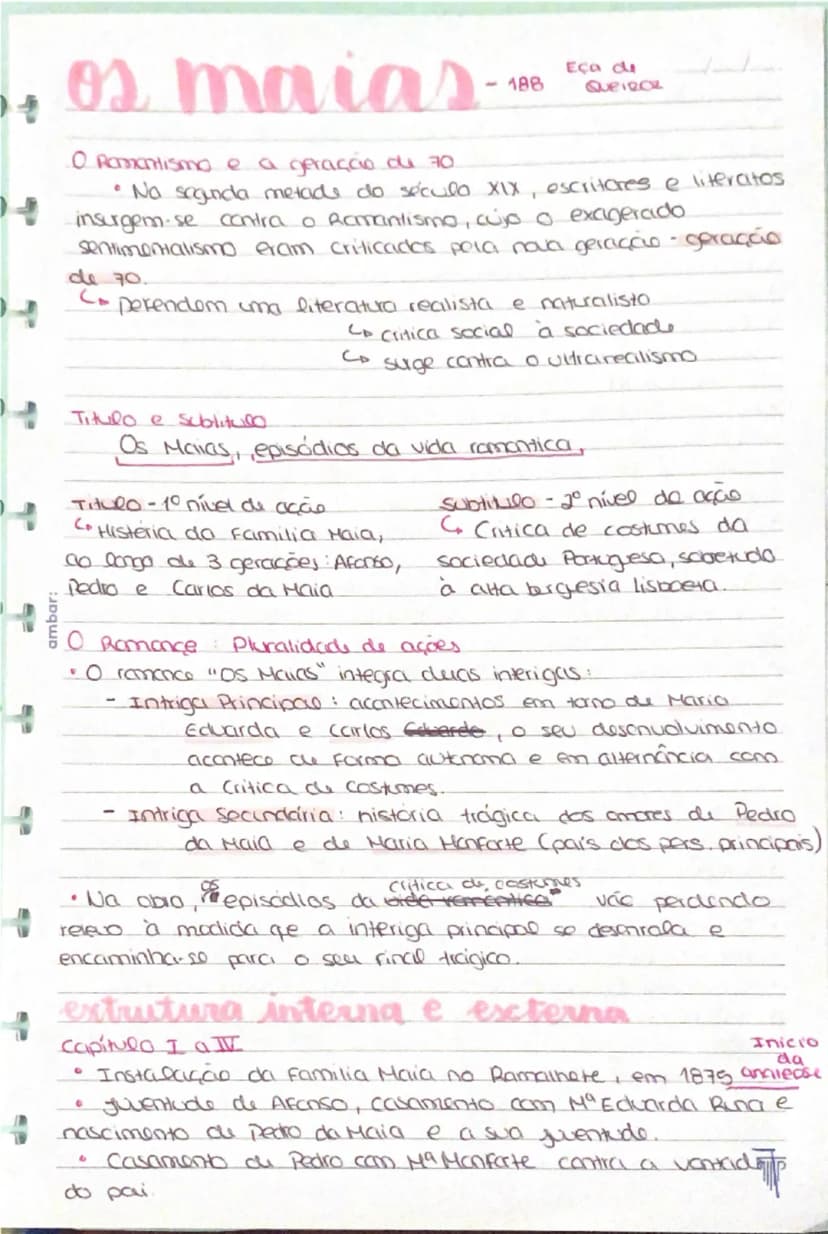 os maias - 188 Eça de
Queiroz
O Romantismo e a geração de 70
• Na segunda metade do século XIX, escritores e literatos
insurgem-se contra o Romantismo, cujo o exagerado
sentimentalismo eram criticados pela nova geração - geração
de 70.
↳ Defendem uma literatura realista e naturalista
↳ crítica social à sociedade
↳ surge contra o ultrarrealismo
Titulo e Subtitulo
Os Maias, episódios da vida romantica,
Titulo - 1º nível de acção
subtitulo - 2º nível de acção
↳ História da Familia Maia,
↳ Critica de costumes da
ao longo de 3 gerações: Afonso,
sociedade Portuguesa, sobretudo
Pedro e Carlos da Maia
à alta burgesia lisboeta.
ambar:
O Romance: Pluralidade de ações
• O romance "Os Maias" integra duas interigas:
- Intriga Principal: acontecimentos em torno de Maria
Eduarda e Carlos Eduardo, o seu desenvolvimento
acontece de forma autonoma e em alternância com
a critica de costumes.
- Intriga Secundária: história trágica dos amores de Pedro
da Maia e de Maria Monforte (pais dos pers. principais)
critica de costumes
• Na obra, os episódios da vida romantica vão perdendo
relevo à medida qe a interiga principal se desenrola e
encaminha-se para o seu final trágico.
estrutura interna e externa
Capítulo I a IV
Início
da
• Instalação da Familia Maia no Ramalhete, em 1875 analepse
• Juventude de Afonso, casamento com Mª Eduarda Runa e
nascimento de Pedro da Maia e a sua juventude.
• Casamento de Pedro com Mª Monforte contra a vontade
do pai.